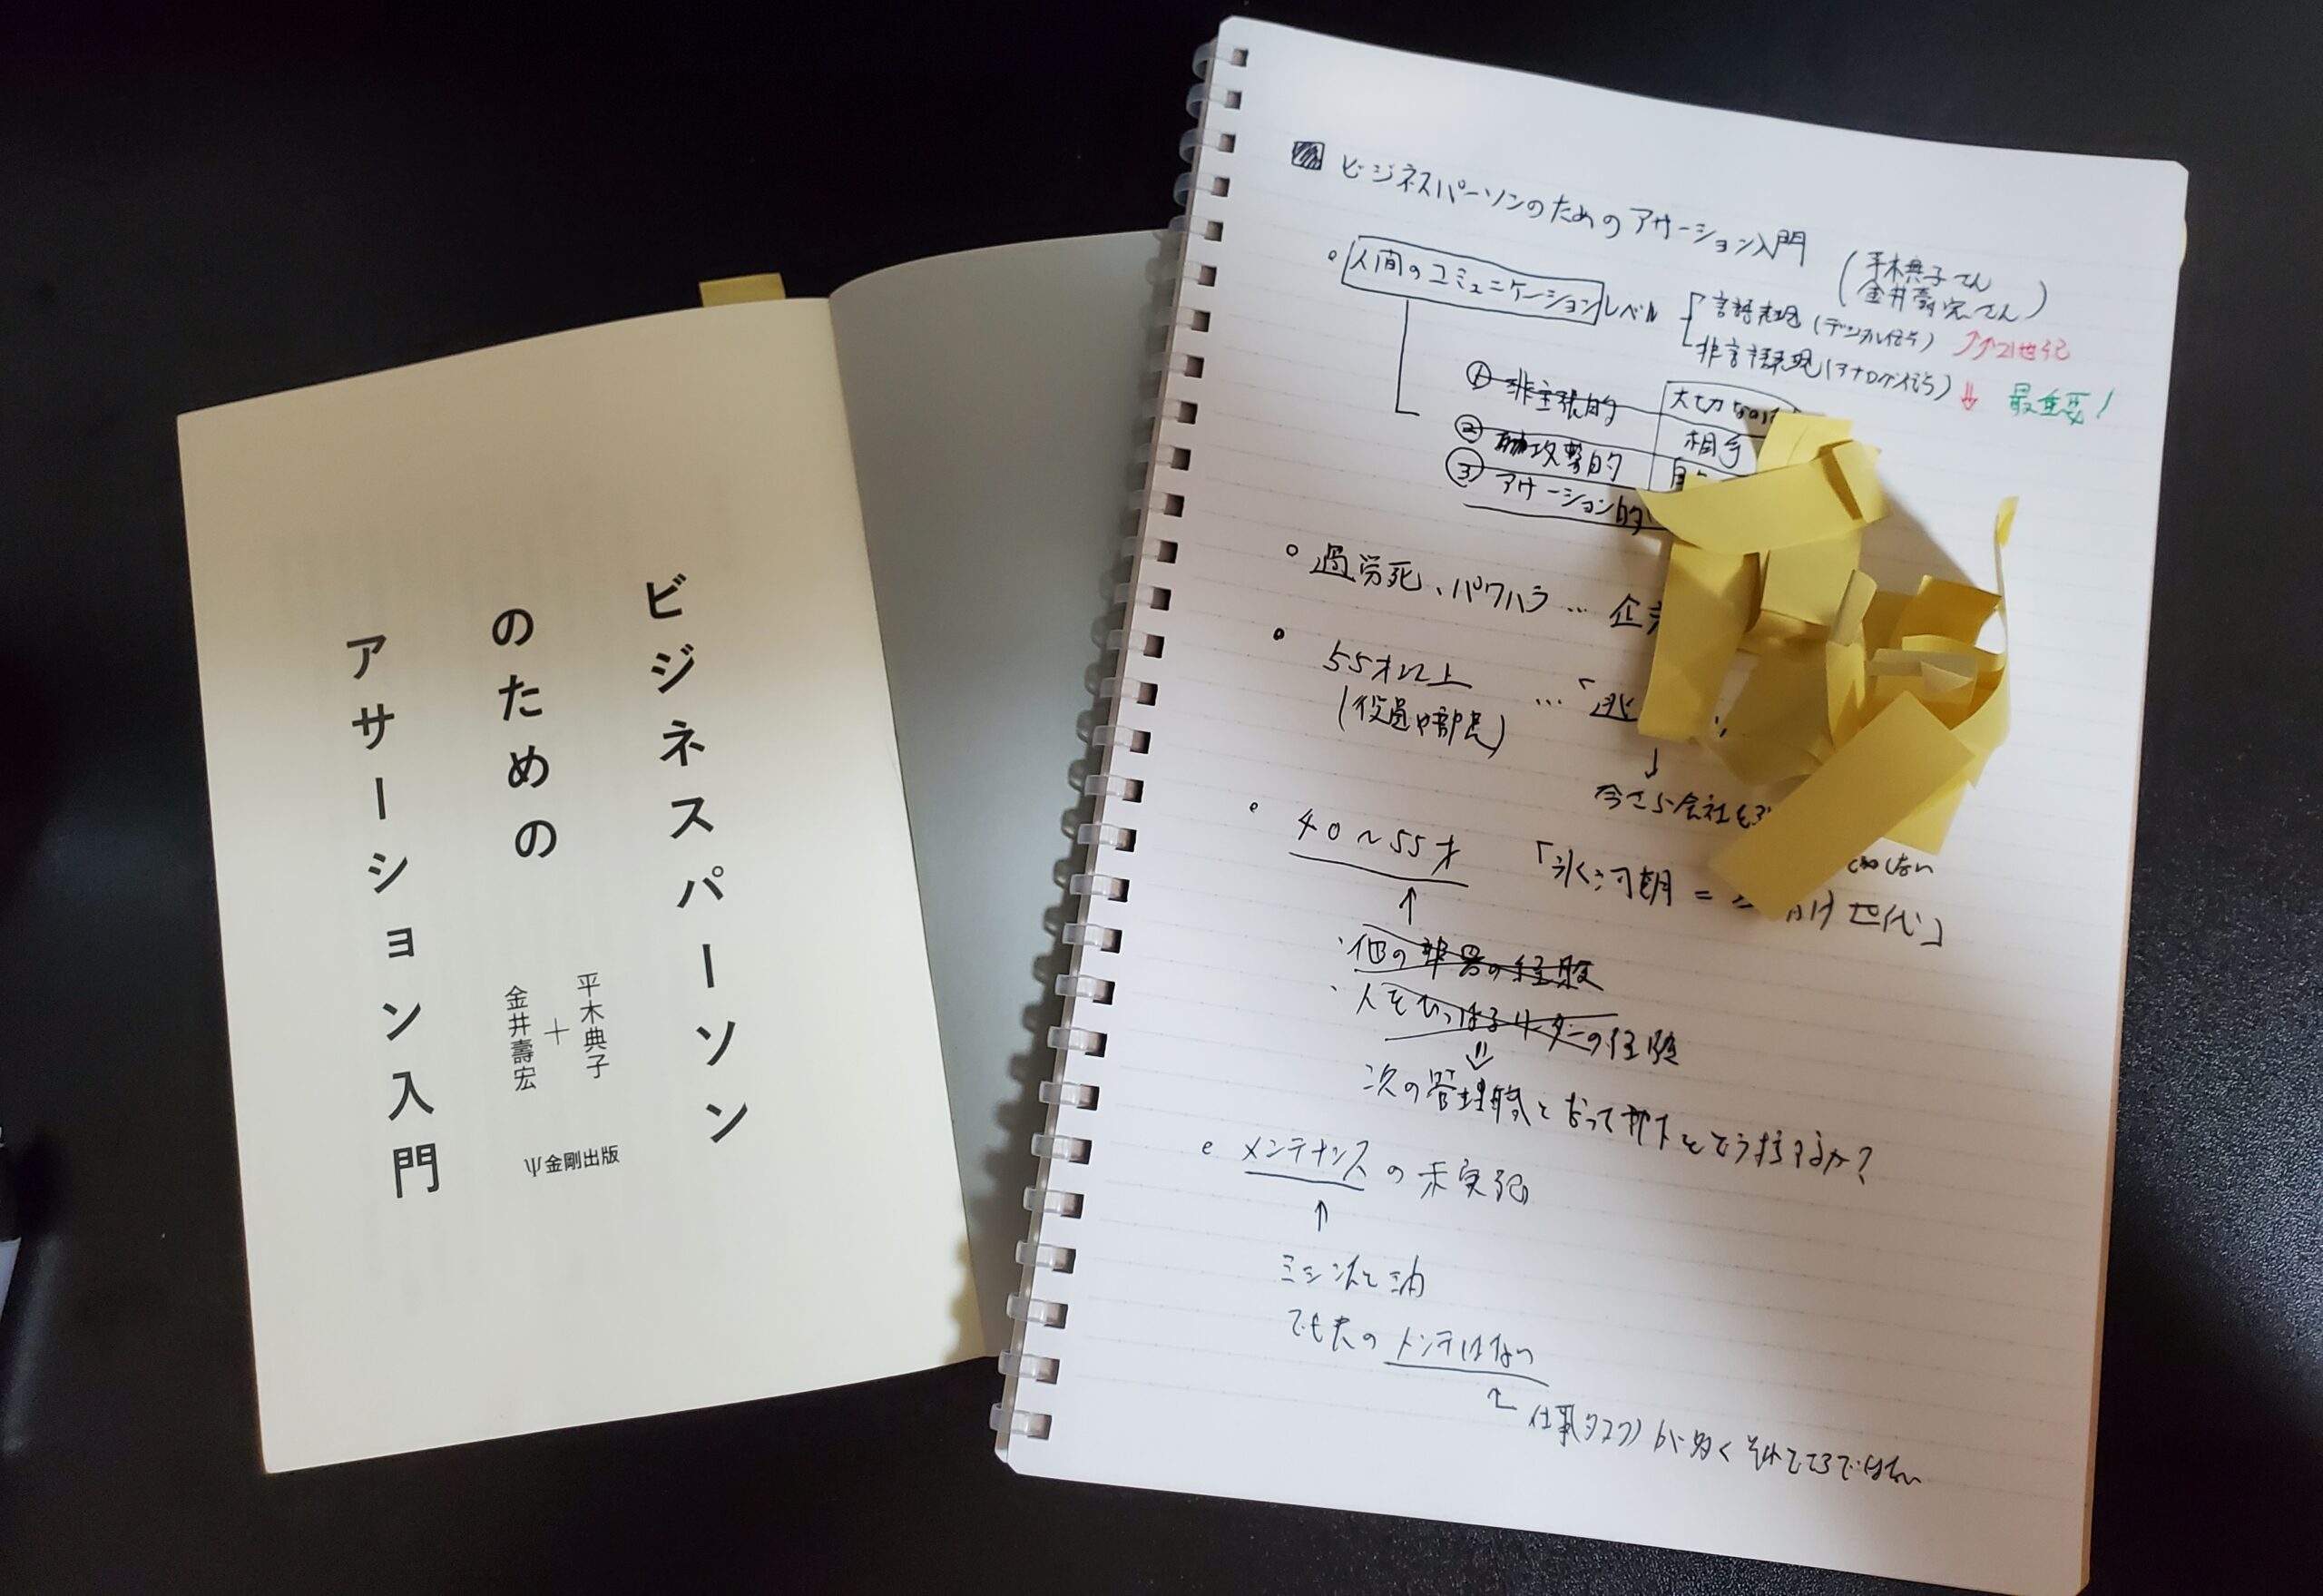 ビジネスパーソン
のための
アサーション入門
平木典子
+
金井壽宏
金剛出版
ビジネスパーソンのためのアサーション入門
(平木典子さん
金井壽宏さん)
人間のコミュニケーションレベル
言語表現(デジタル信号) ↑↑21世紀
非言語表現(アナログ信号) ⇓ 最重要!
① 非主張的 大切なのは
② 攻撃的 相手
③ アサーション的
過労死、パワハラ…
55才以上 …「逃
(役員や部長)
↓
今さら会社を
40~55才 「氷河期= 世代」
↑
・他の 経験
・人をひっぱるリーダーの経験
⇓
次の管理職となって部下をどう するか?
メンテナンスの未実施
↑
ミシンと油
でも夫のメンテはない
仕事(タスク)が多くそれどころではない